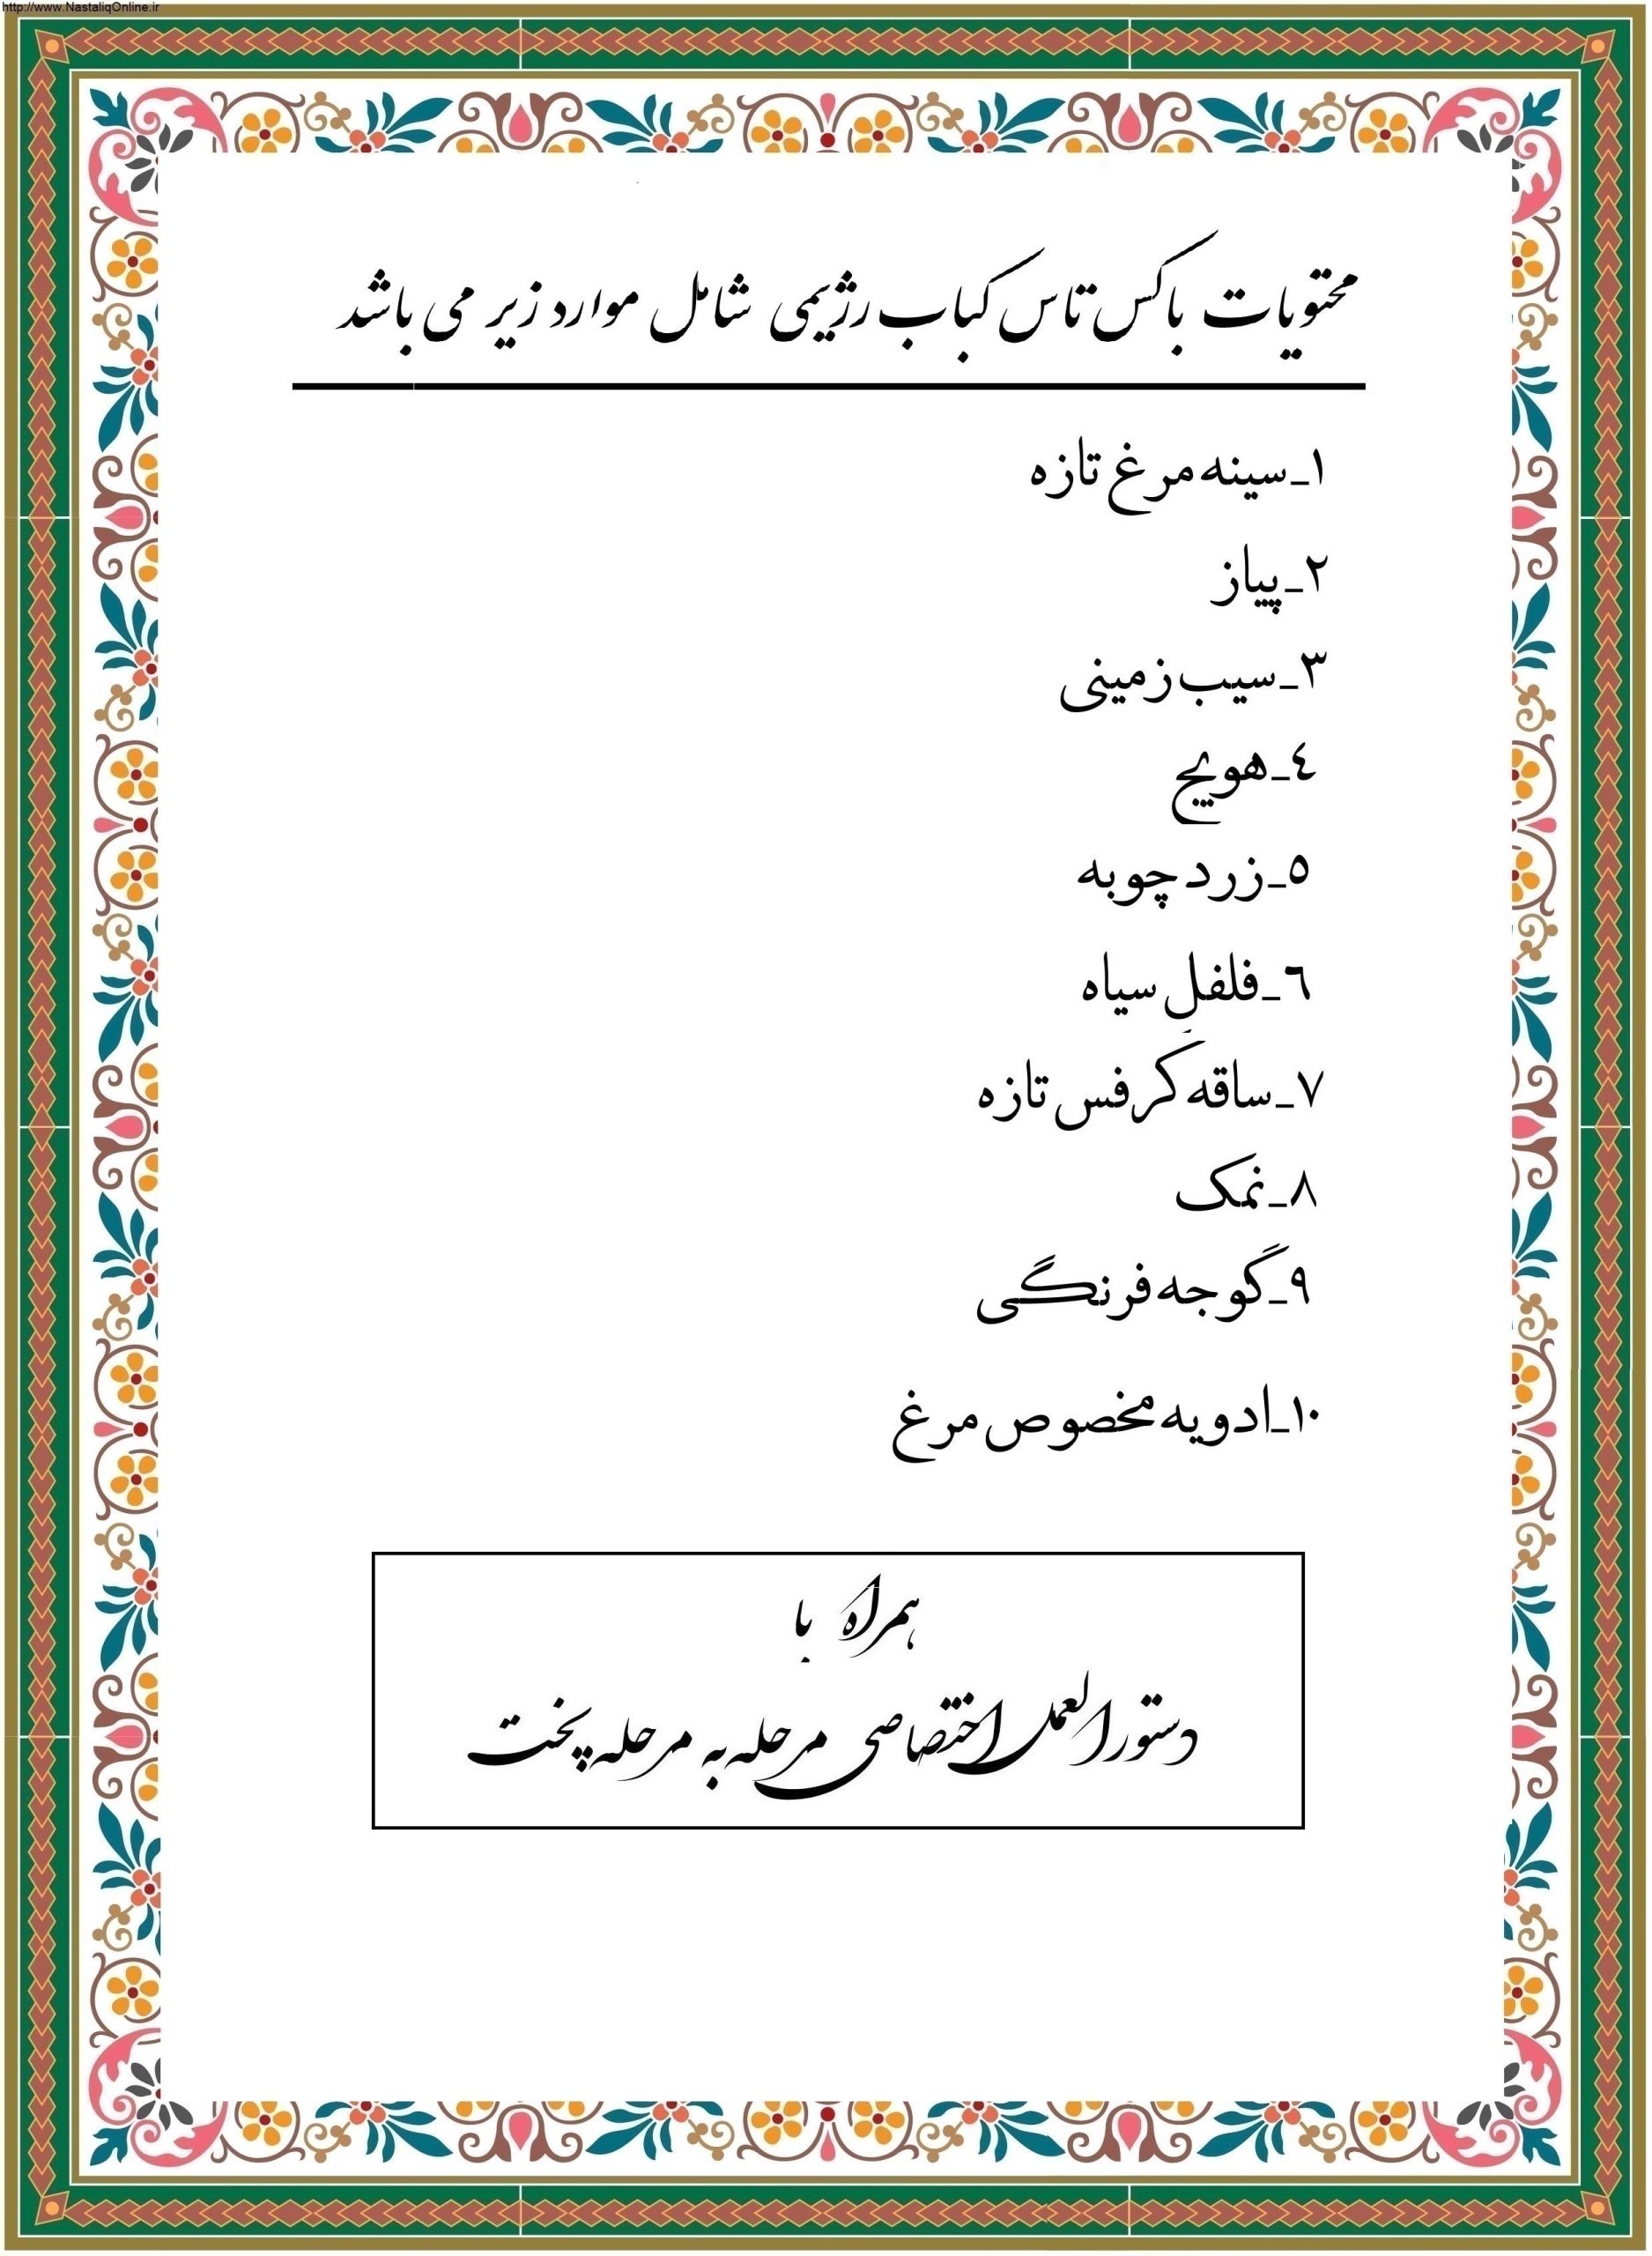 http://www.NastaliqOnline.ir
محتویات باکس تاس کباب رژیمی شامل موارد زیر می باشد
١_سینه مرغ تازه
٢_پیاز
٣_سیب زمینی
٤_هویج
٥_زرد چوبه
٦_فلفل سیاه
٧_ساقه کرفس تازه
٨_نمک
٩_گوجه فرنگی
١٠_ادویه مخصوص مرغ
همراه با
دستورالعمل اختصاصی مرحله به مرحله پخت